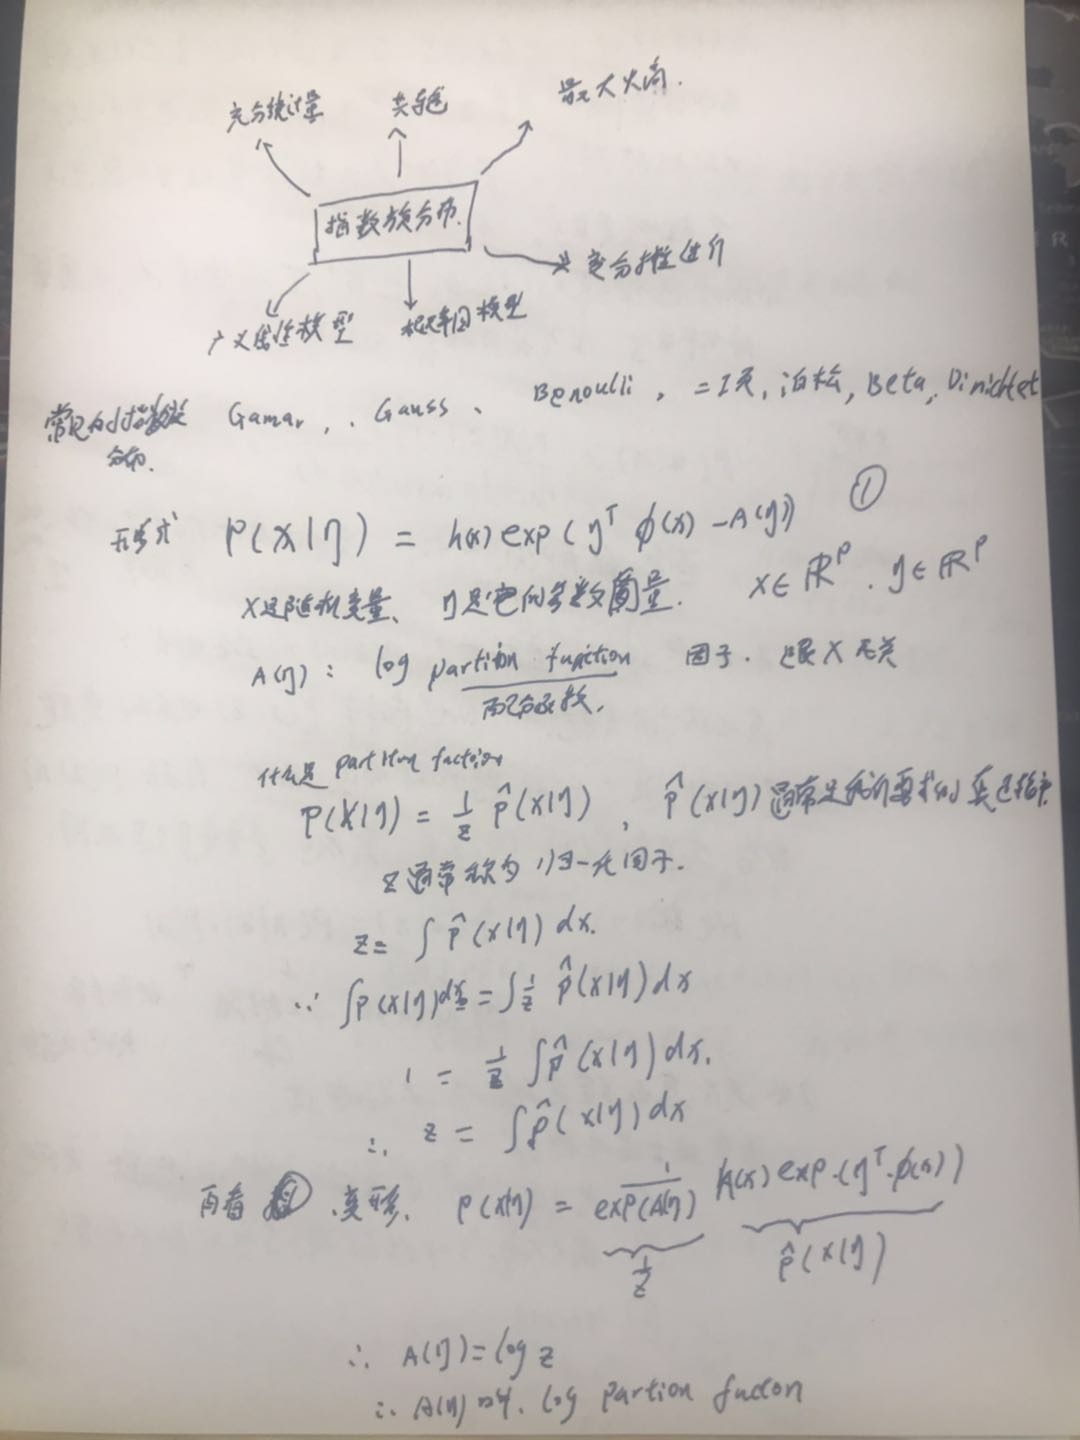 充分统计量 共轭 最大火商.
指数族分布.
变分推断
广义线性模型 概率图模型
常见的指数族 Gamar, 、Gauss 、 Benoulli , 二项, 泊松, Beta, Dirichlet
分布.
形式 P(x|η) = h(x) exp(η^T φ(x) - A(η)) ①
X是随机变量、 η是它的参数向量. x∈ℝ^p . η∈ℝ^p
A(η): log partition function 因子. 跟X无关
配分函数,
什么是 partition function
P(X|η) = 1/z p̂(x|η) , p̂(x|η) 通常是我们要求的
z通常称为 归一化因子.
z= ∫ p̂(x|η) dx.
∵ ∫p(x|η)dx = ∫1/z p̂(x|η)dx
1 = 1/z ∫p̂(x|η)dx.
∴ z = ∫p̂(x|η)dx
再看 ① 变形. p(x|η) = 1/exp(A(η)) h(x) exp·(η^T·φ(x))
1/z p̂(x|η)
∴ A(η)=log z
∴ A(η)叫. log partion fuction